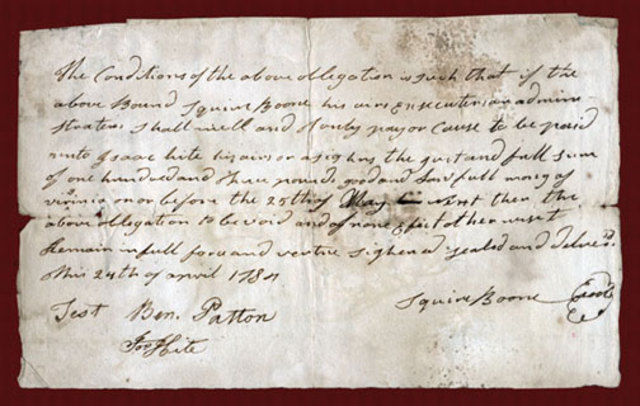 The Conditions of the above obligation is such that if the
above Bound Squire Boone his airs Executers or admine
straters Shall well and truly pay or Cause to be paid
unto Isaac hite his airs or asighns the just and full sum
of one hundred and three pounds good and Lawfull mony of
virginia on or before the 25th of May next then the
above obligation to be void and of none Efect otherwise t
Remain in full force and vertue sighened sealed and delverd
this 24th of april 1784
Test Ben. Patton
Squire Boone
Jos Hite